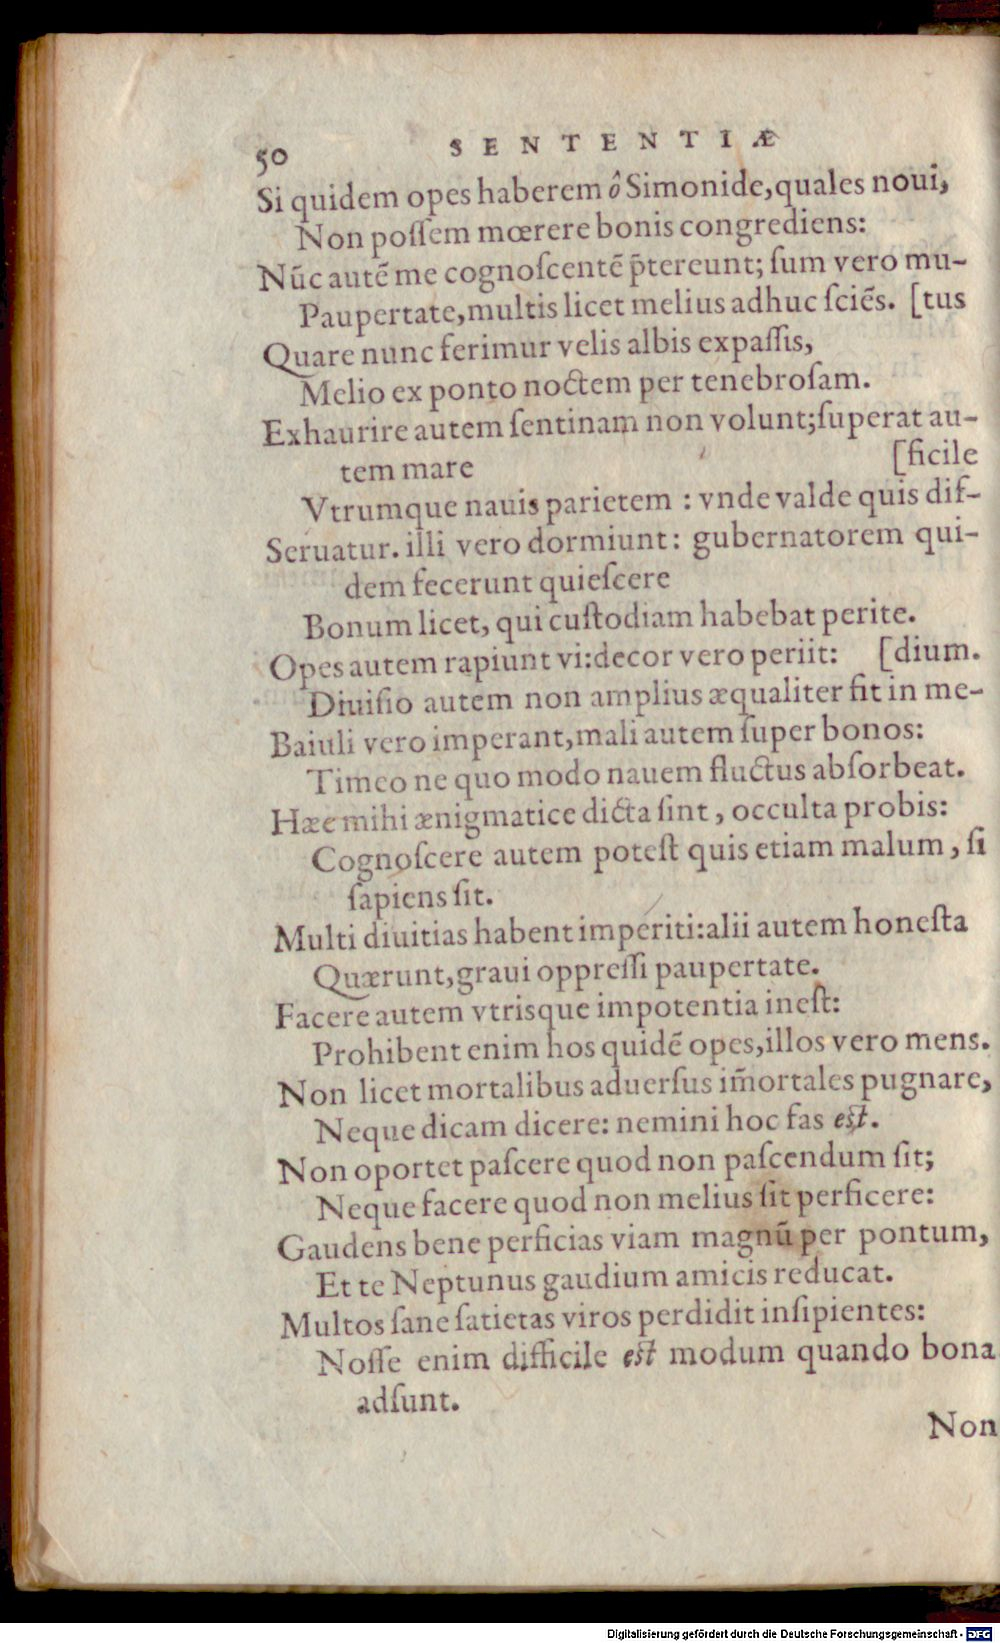 50 SENTENTIÆ
Si quidem opes haberem ô Simonide,quales noui,
Non poſſem mœrere bonis congrediens:
Nūc autē me cognoſcentē p̄tereunt; ſum vero mu-
Paupertate,multis licet melius adhuc ſciēs. [tus
Quare nunc ferimur velis albis expaſſis,
Melio ex ponto noctem per tenebroſam.
Exhaurire autem ſentinam non volunt;ſuperat au-
tem mare [ficile
Vtrumque nauis parietem : vnde valde quis dif-
Seruatur. illi vero dormiunt: gubernatorem qui-
dem fecerunt quieſcere
Bonum licet, qui cuſtodiam habebat perite.
Opes autem rapiunt vi:decor vero periit: [dium.
Diuiſio autem non amplius æqualiter fit in me-
Baiuli vero imperant,mali autem ſuper bonos:
Timeo ne quo modo nauem fluctus abſorbeat.
Hæc mihi ænigmatice dicta ſint, occulta probis:
Cognoſcere autem poteſt quis etiam malum, ſi
ſapiens ſit.
Multi diuitias habent imperiti:alii autem honeſta
Quærunt,graui oppreſſi paupertate.
Facere autem vtrisque impotentia ineſt:
Prohibent enim hos quidē opes,illos vero mens.
Non licet mortalibus aduerſus im̄ortales pugnare,
Neque dicam dicere: nemini hoc fas eſt.
Non oportet paſcere quod non paſcendum ſit;
Neque facere quod non melius ſit perficere:
Gaudens bene perficias viam magnū per pontum,
Et te Neptunus gaudium amicis reducat.
Multos ſane ſatietas viros perdidit inſipientes:
Noſſe enim difficile eſt modum quando bona
adſunt.
Non
Digitalisierung gefördert durch die Deutsche Forschungsgemeinschaft - DFG